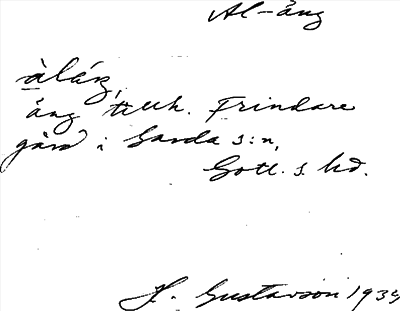 Al-äng
àláŋ,
äng tillh. Frindare
gård i Sanda s:n,
Gotl. s. hd.
H. Gustavson 1935